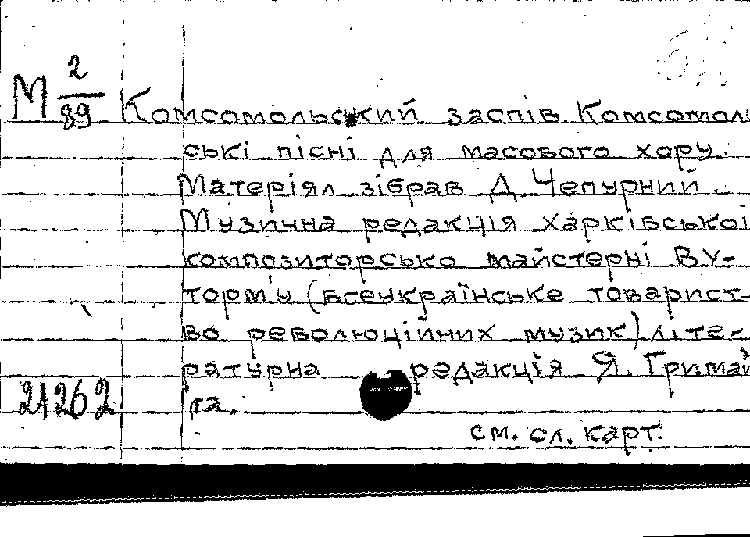 М 2/89 Комсомольский заспів. Комсомоль
ські пісні для масового хору.
Матеріял зібрав Д. Чепурний.
Музична редакція харківської
композиторсько майстерні ВУ-
торм'у (всеукраїнське товарист-
во революційних музик) літе-
ратурна редакція Я. Гримай
21262 ла.
см. сл. карт.